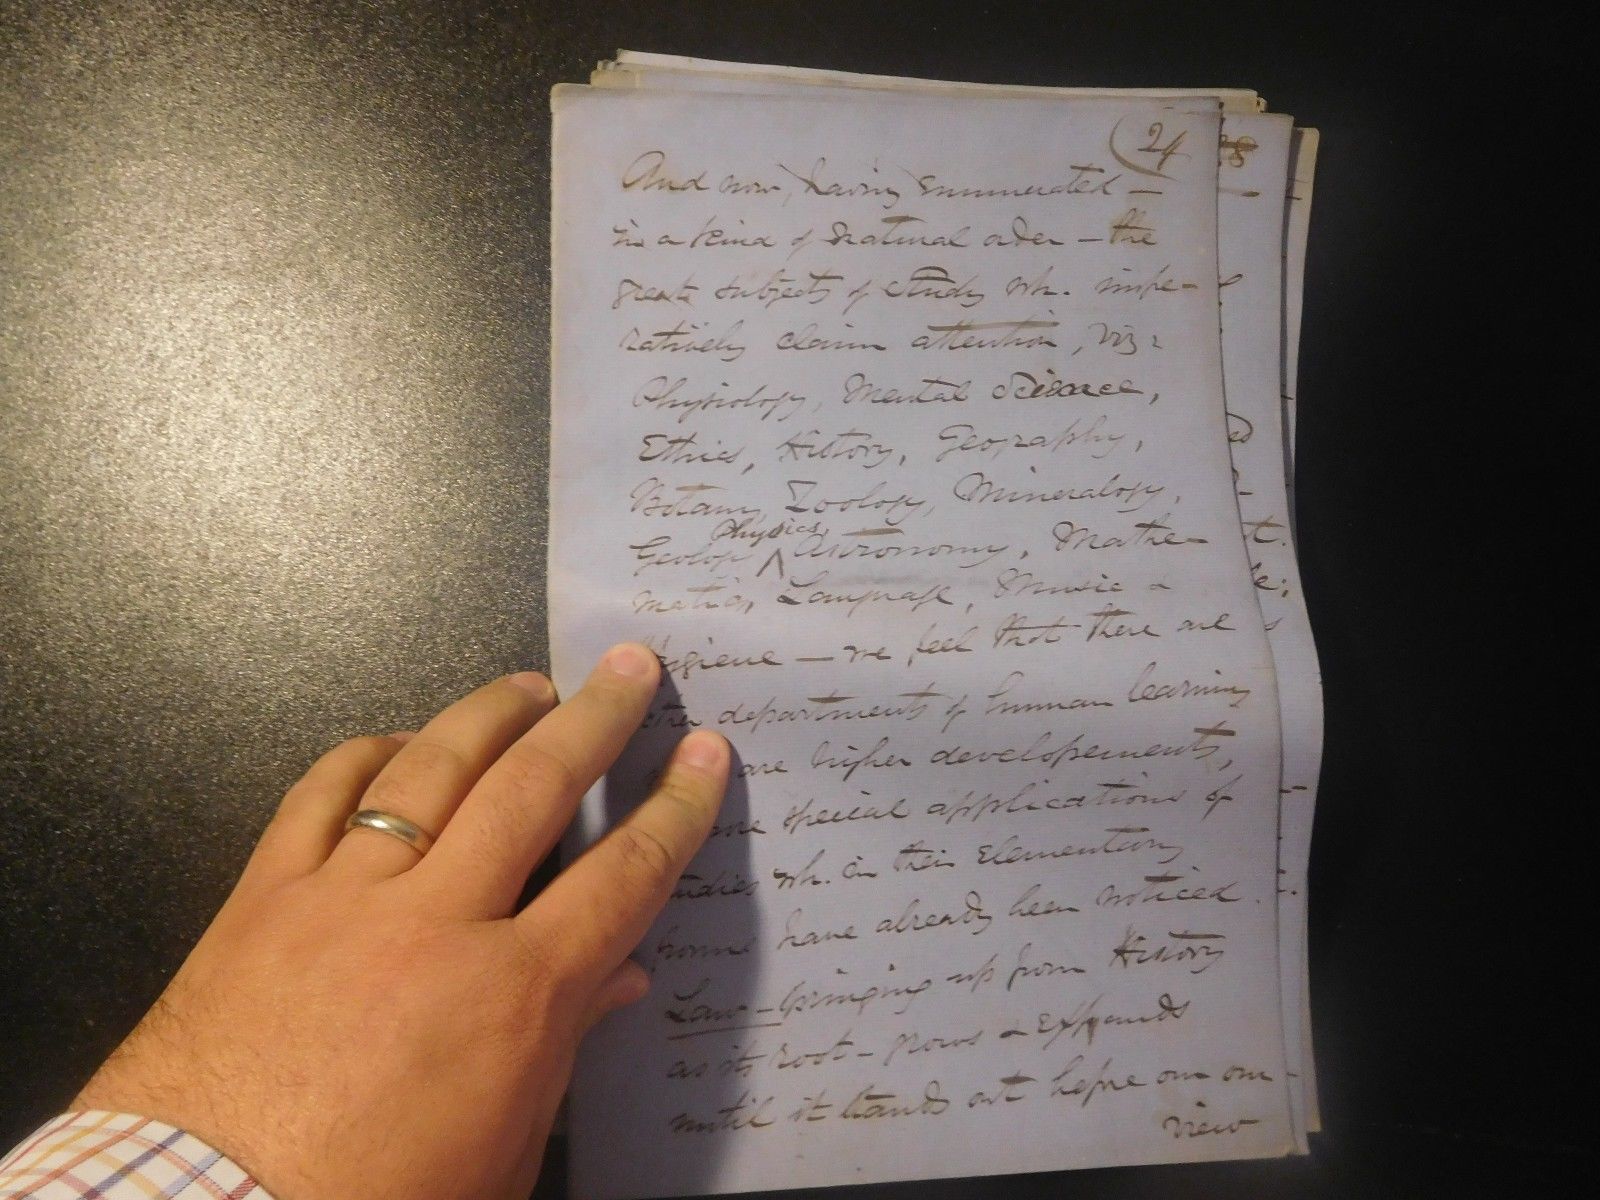 24
And now, having enumerated —
in a kind of natural order — the
great subjects of study wh. impe-
ratively claim attention, viz:
Physiology, Mental Science,
Ethics, History, Geography,
Botany, Zoology, Mineralogy,
Physics,
Geology Astronomy, Mathe-
matics, Language, Music &
Hygiene — we feel that there are
other departments of human learning
are higher developements,
special applications of
studies wh. in their elementary
forms have already been noticed.
Law - springing up from History
as its root - grows & expands
until it stands out before our
view